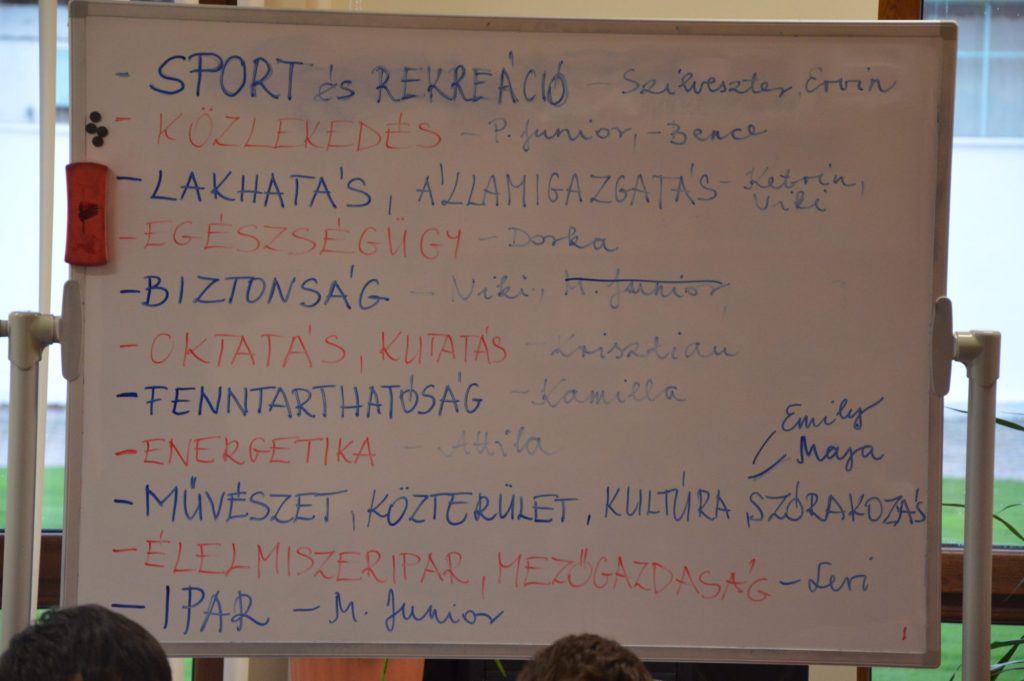 - SPORT és REKREÁCIÓ - Szilveszter, Ervin
- KÖZLEKEDÉS - P. Junior, - Bence
- LAKHATÁS, ÁLLAMIGAZGATÁS - Ketrin,
Viki
- EGÉSZSÉGÜGY - Dorka
- BIZTONSÁG - Viki, M. Junior,
- OKTATÁS, KUTATÁS - Krisztian
- FENNTARTHATÓSÁG - Kamilla
- ENERGETIKA - Attila
Emily
Maja
- MŰVÉSZET, KÖZTERÜLET, KULTÚRA, SZÓRAKOZÁS
- ÉLELMISZERIPAR, MEZŐGAZDASÁG - Levi
- IPAR - M. Junior